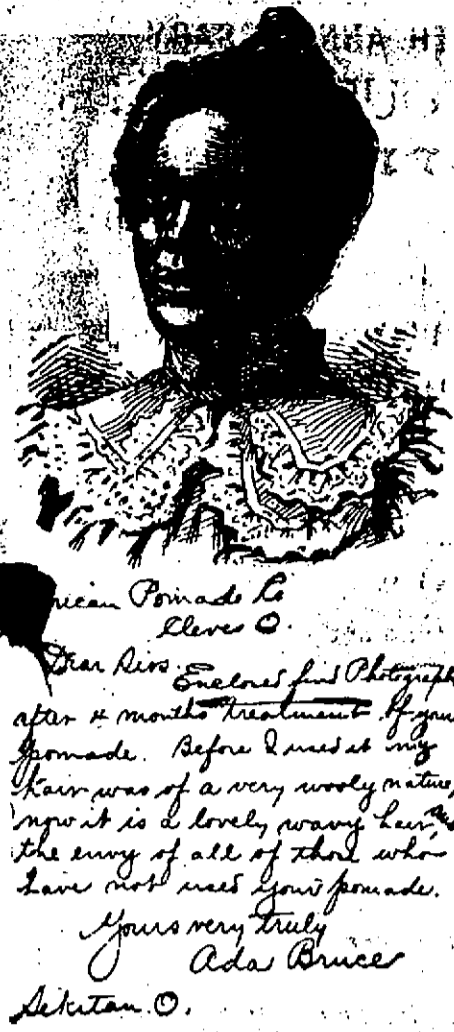 rican Pomade Co
Cleves O.
Dear Sirs.
Enclosed find Photograph
after 4 months treatment of your
pomade. Before I used it my
hair was of a very wooly nature,
now it is a lovely wavy hair and
the envy of all of those who
have not used your pomade.
Yours very truly
Ada Bruce
Sekitan O.